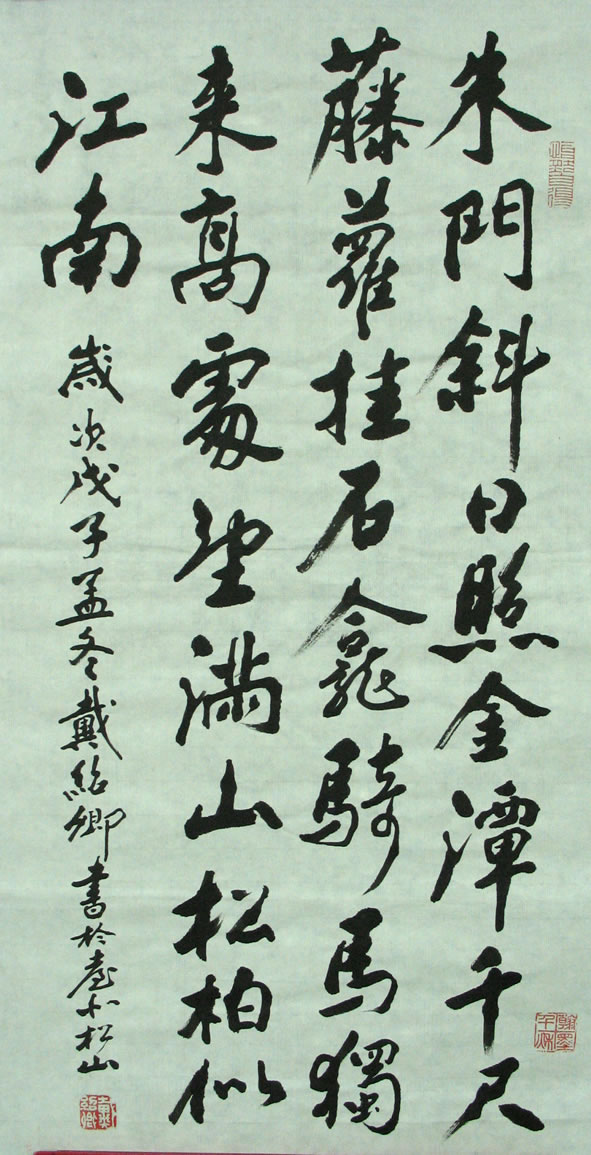 朱門斜日照金潭千尺
藤蘿挂石龕騎馬獨
来高處望滿山松柏似
江南
歲次戊子孟冬戴紹卿書於臺北松山